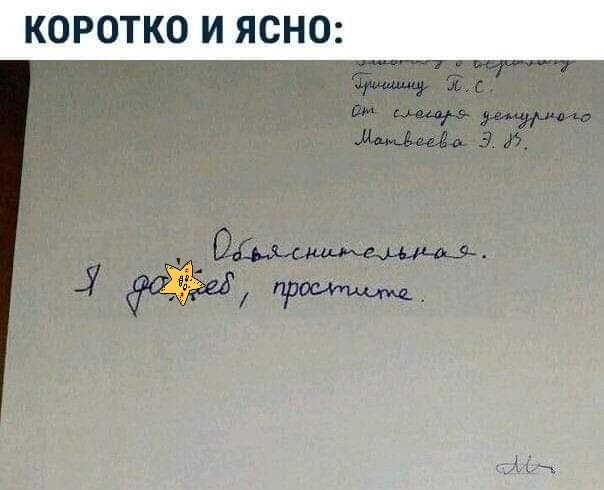 КОРОТКО И ЯСНО:
Гришину П.С.
от слесаря дежурного
Матвеева Э. В.
Объяснительная.
Я до еб, простите.